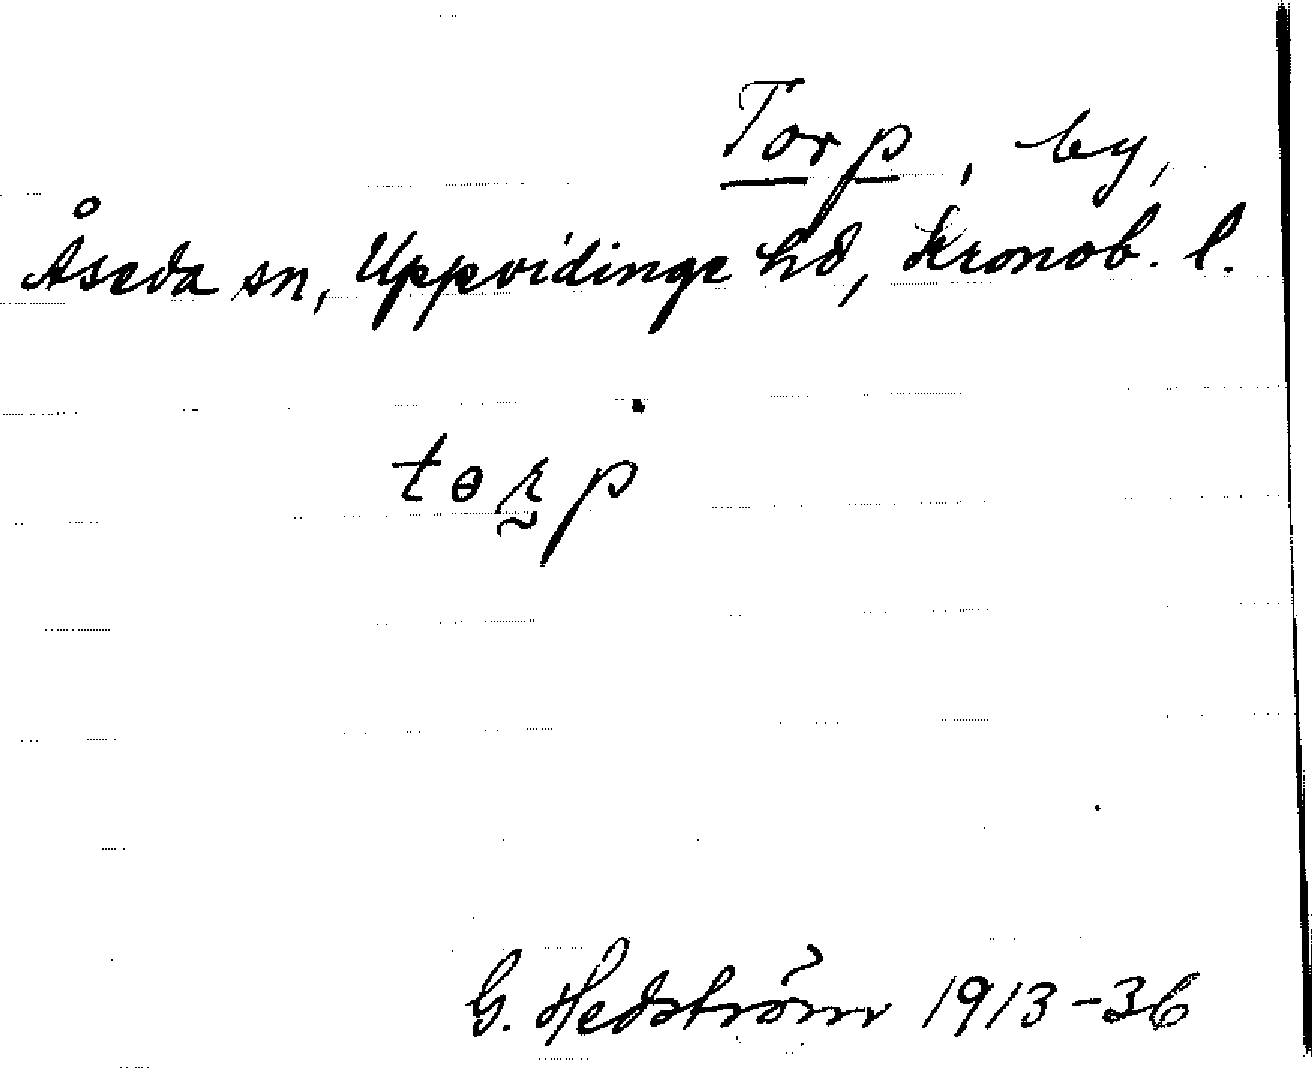 Torp, by,
Åseda sn, Uppvidinge hd, Kronob. l.
tɵʀ̰p
G. Hedström 1913-36